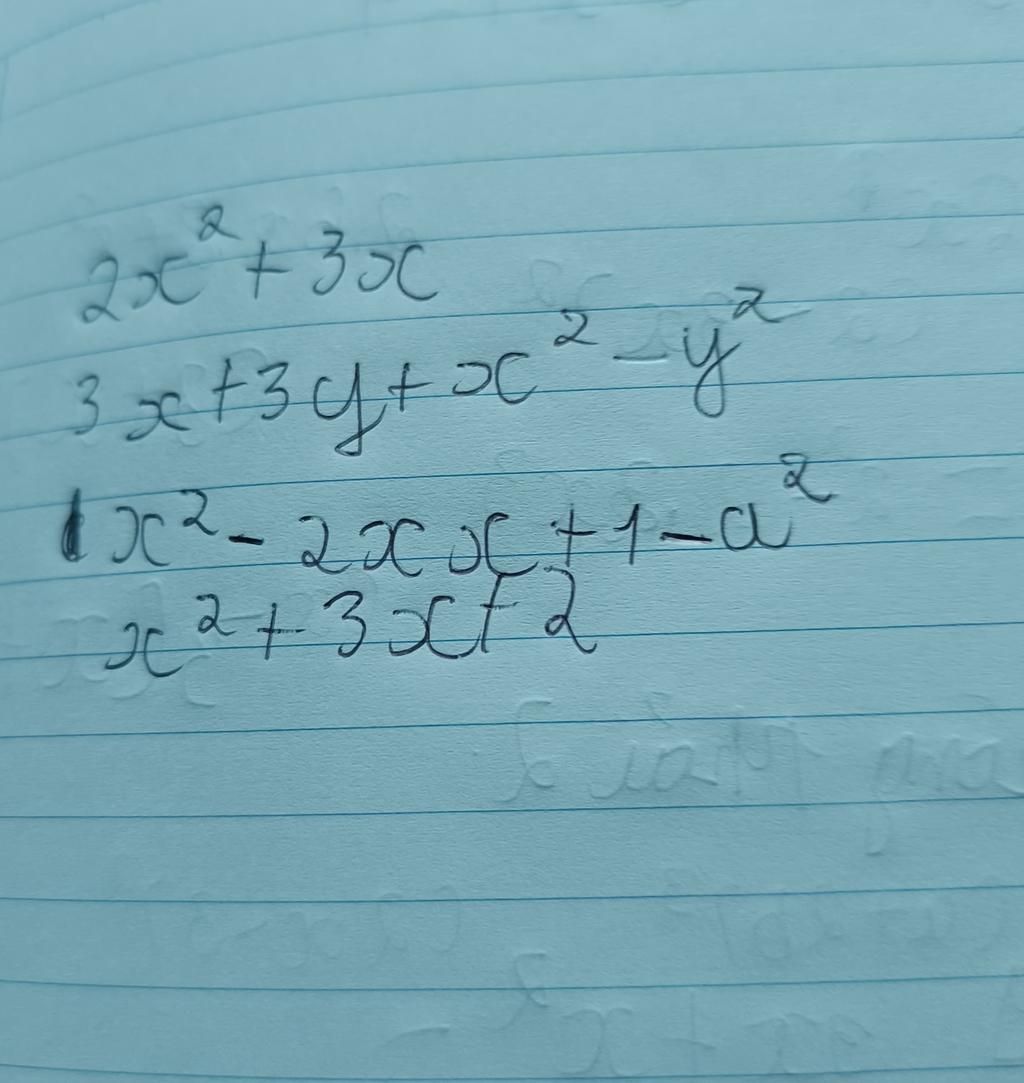 2x² + 3x
3x + 3y + x² - y²
x² - 2xx + 1 - a²
x² + 3x + 2